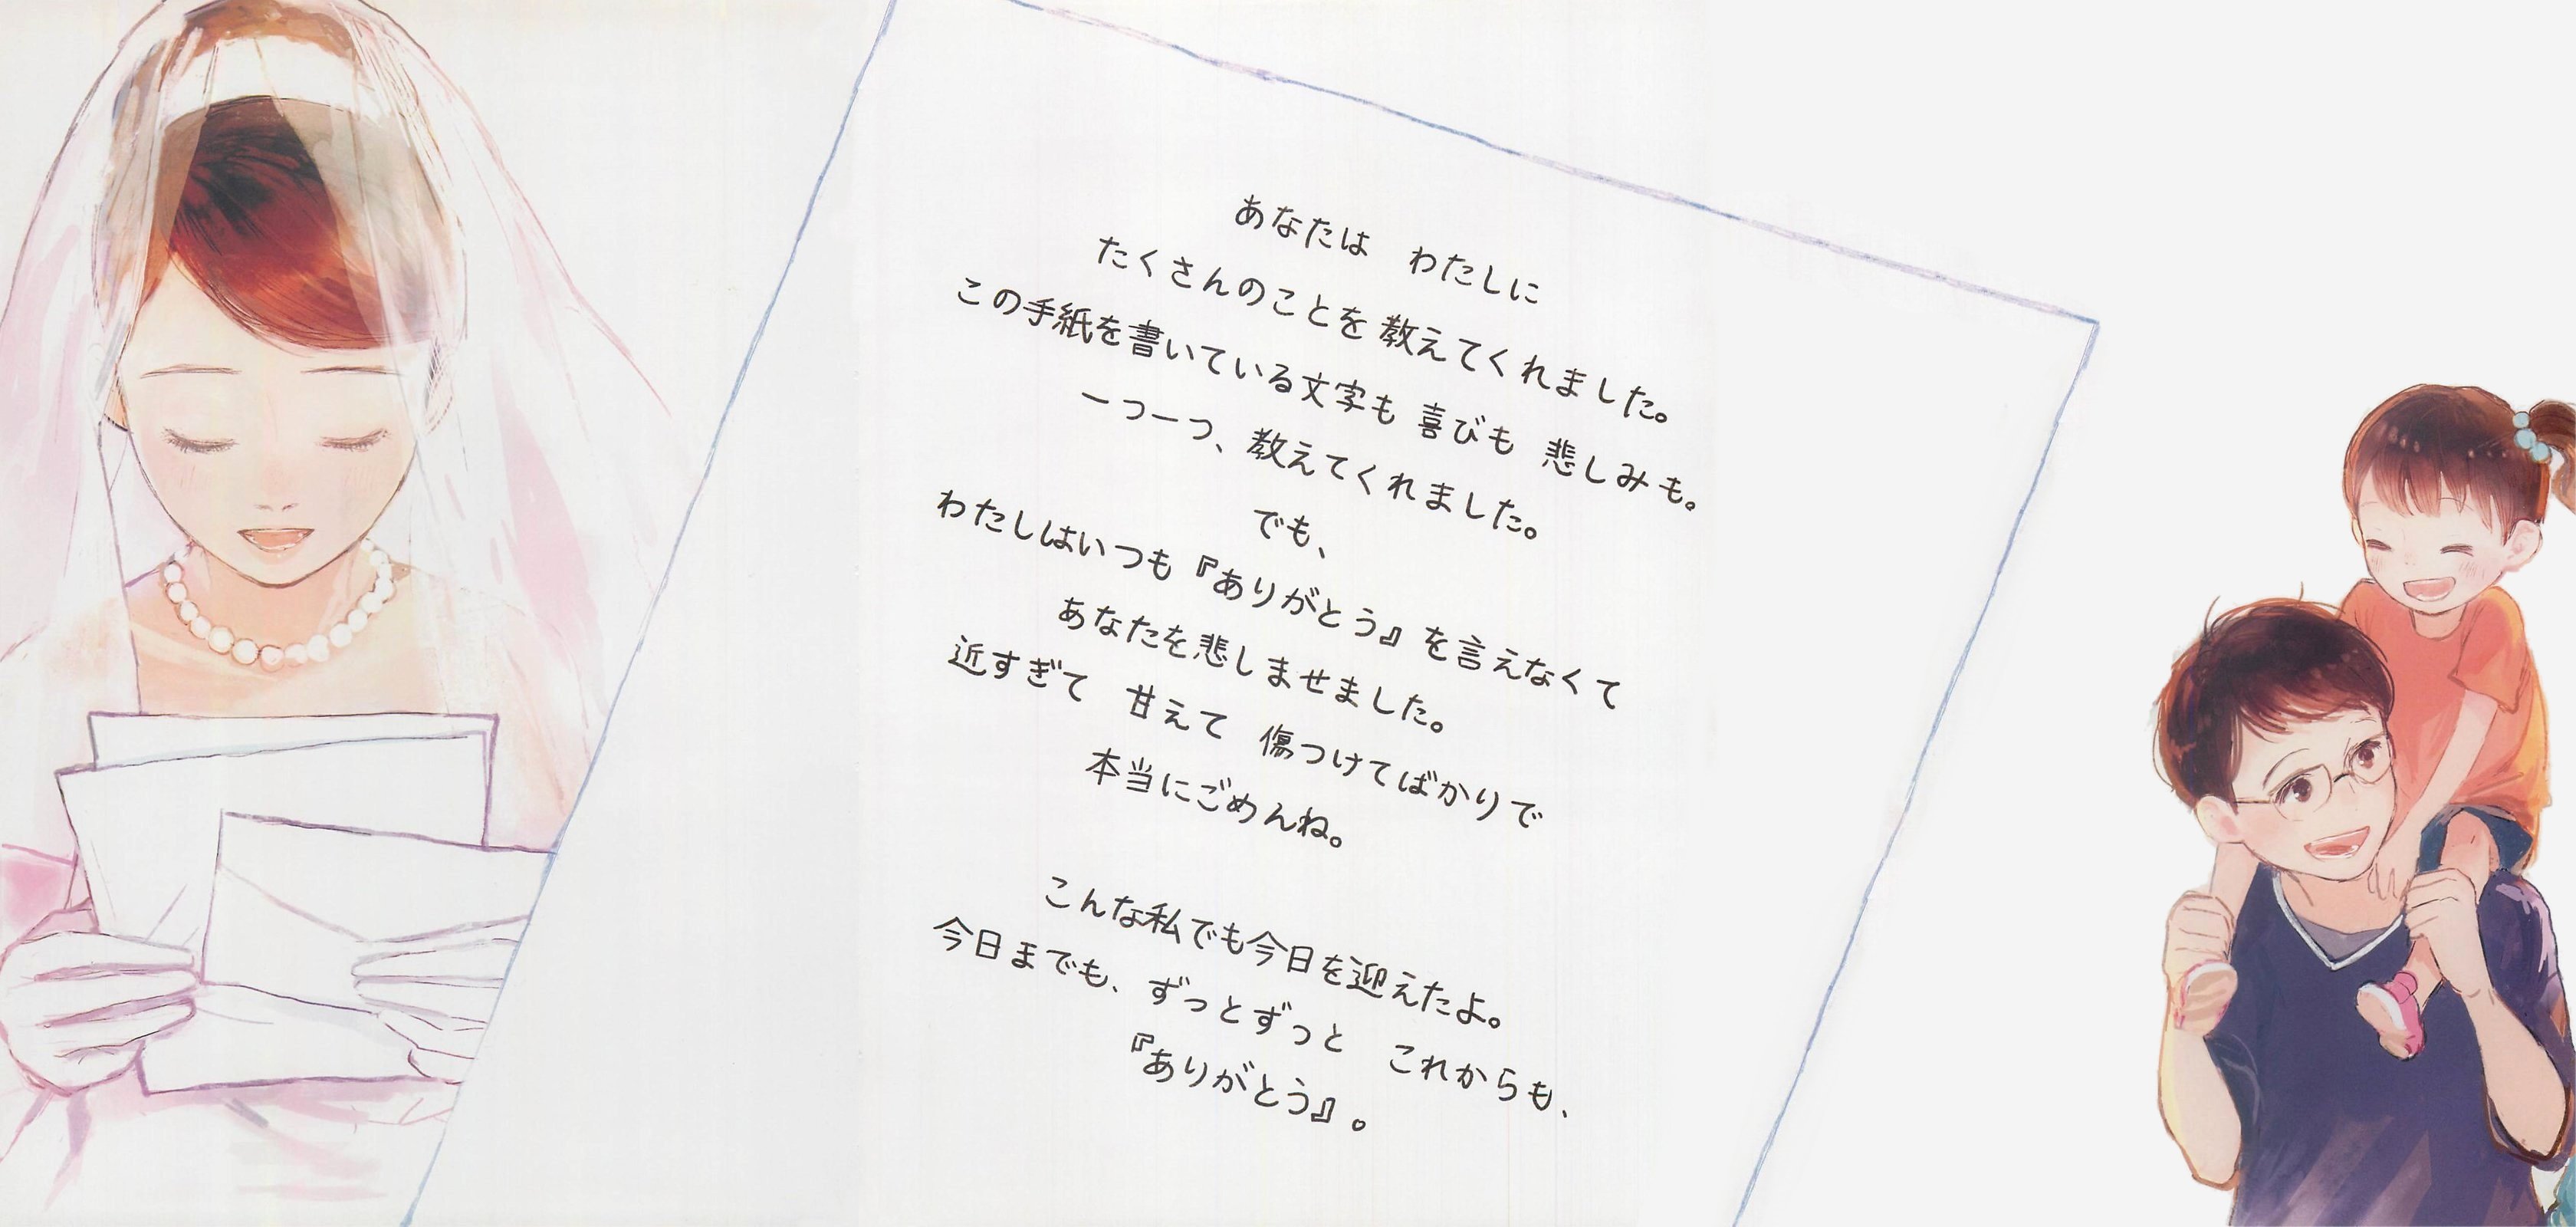 あなたは　わたしに
たくさんのことを 教えてくれました。
この手紙を書いている文字も 喜びも 悲しみも。
一つ一つ、教えてくれました。
でも、
わたしはいつも『ありがとう』を言えなくて
あなたを悲しませました。
近すぎて　甘えて　傷つけてばかりで
本当にごめんね。
こんな私でも今日を迎えたよ。
今日までも、ずっとずっと　これからも、
『ありがとう』。